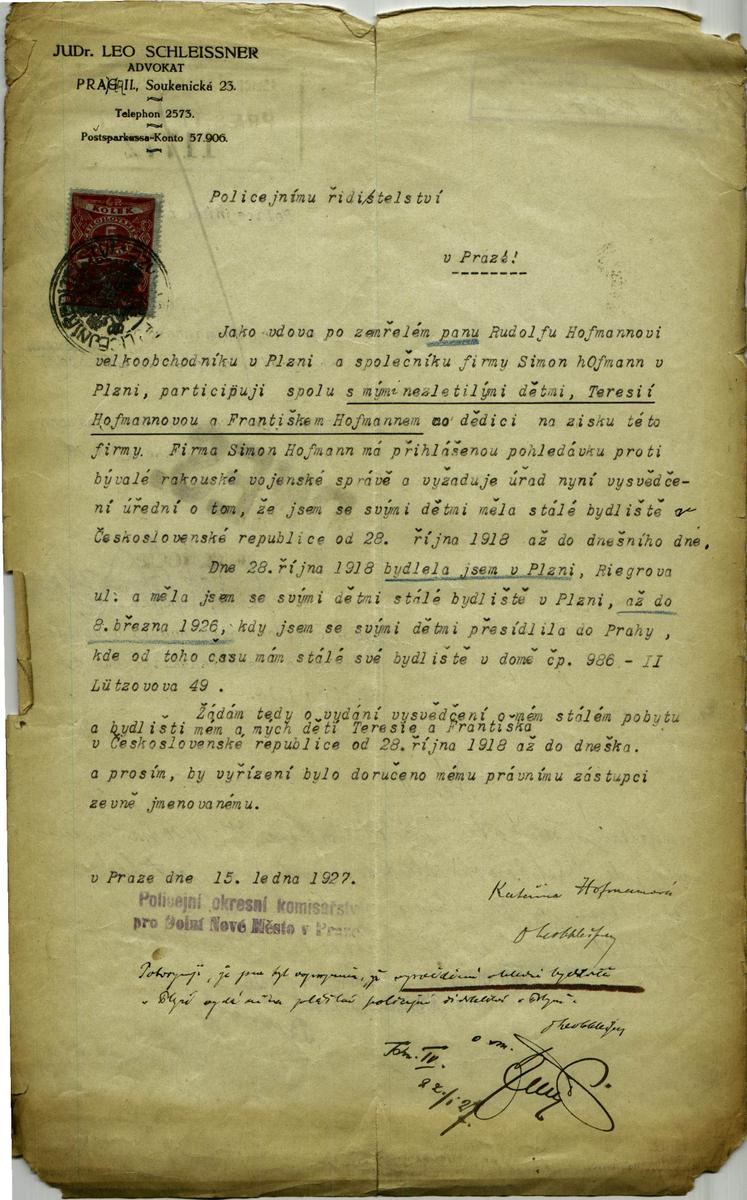 JUDr. LEO SCHLEISSNER
ADVOKAT
PRAHA II., Soukenická 23.
Telephon 2573.
Postsparkassa-Konto 57.906.
KOLEK
5
Policejnímu řiditelství
v Praze!
Jako vdova po zemřelém panu Rudolfu Hofmannovi
velkoobchodníku v Plzni a společníku firmy Simon hOfmann v
Plzni, participuji spolu s mými nezletilými dětmi, Teresií
Hofmannovou a Františkem Hofmannem co dědici na zisku této
firmy. Firma Simon Hofmann má přihlášenou pohledávku proti
bývalé rakouské vojenské správě a vyžaduje úřad nyní vysvědče-
ní úřední o tom, že jsem se svými dětmi měla stálé bydliště v
Československé republice od 28. října 1918 až do dnešního dne.
Dne 28.října 1918 bydlela jsem v Plzni, Riegrova
ul. a měla jsem se svými dětmi stálé bydliště v Plzni, až do
8.března 1926, kdy jsem se svými dětmi přesídlila do Prahy ,
kde od toho času mám stálé své bydliště v domě čp. 986 - II
Lützovova 49 .
Žádám tedy o vydání vysvědčení o mém stálém pobytu
a bydlišti mém a mých dětí Teresie a Františka
v Československé republice od 28.října 1918 až do dneška.
a prosím, by vyřízení bylo doručeno mému právnímu zástupci
zevně jmenovanému.
v Praze dne 15. ledna 1927.
Policejní okresní komisařství
pro Dolní Nové Město v Praze
Kateřina Hofmannová
Potvrzuji, že jsem byl vyrozuměn, že
v Plzni vydá policejní
IV.